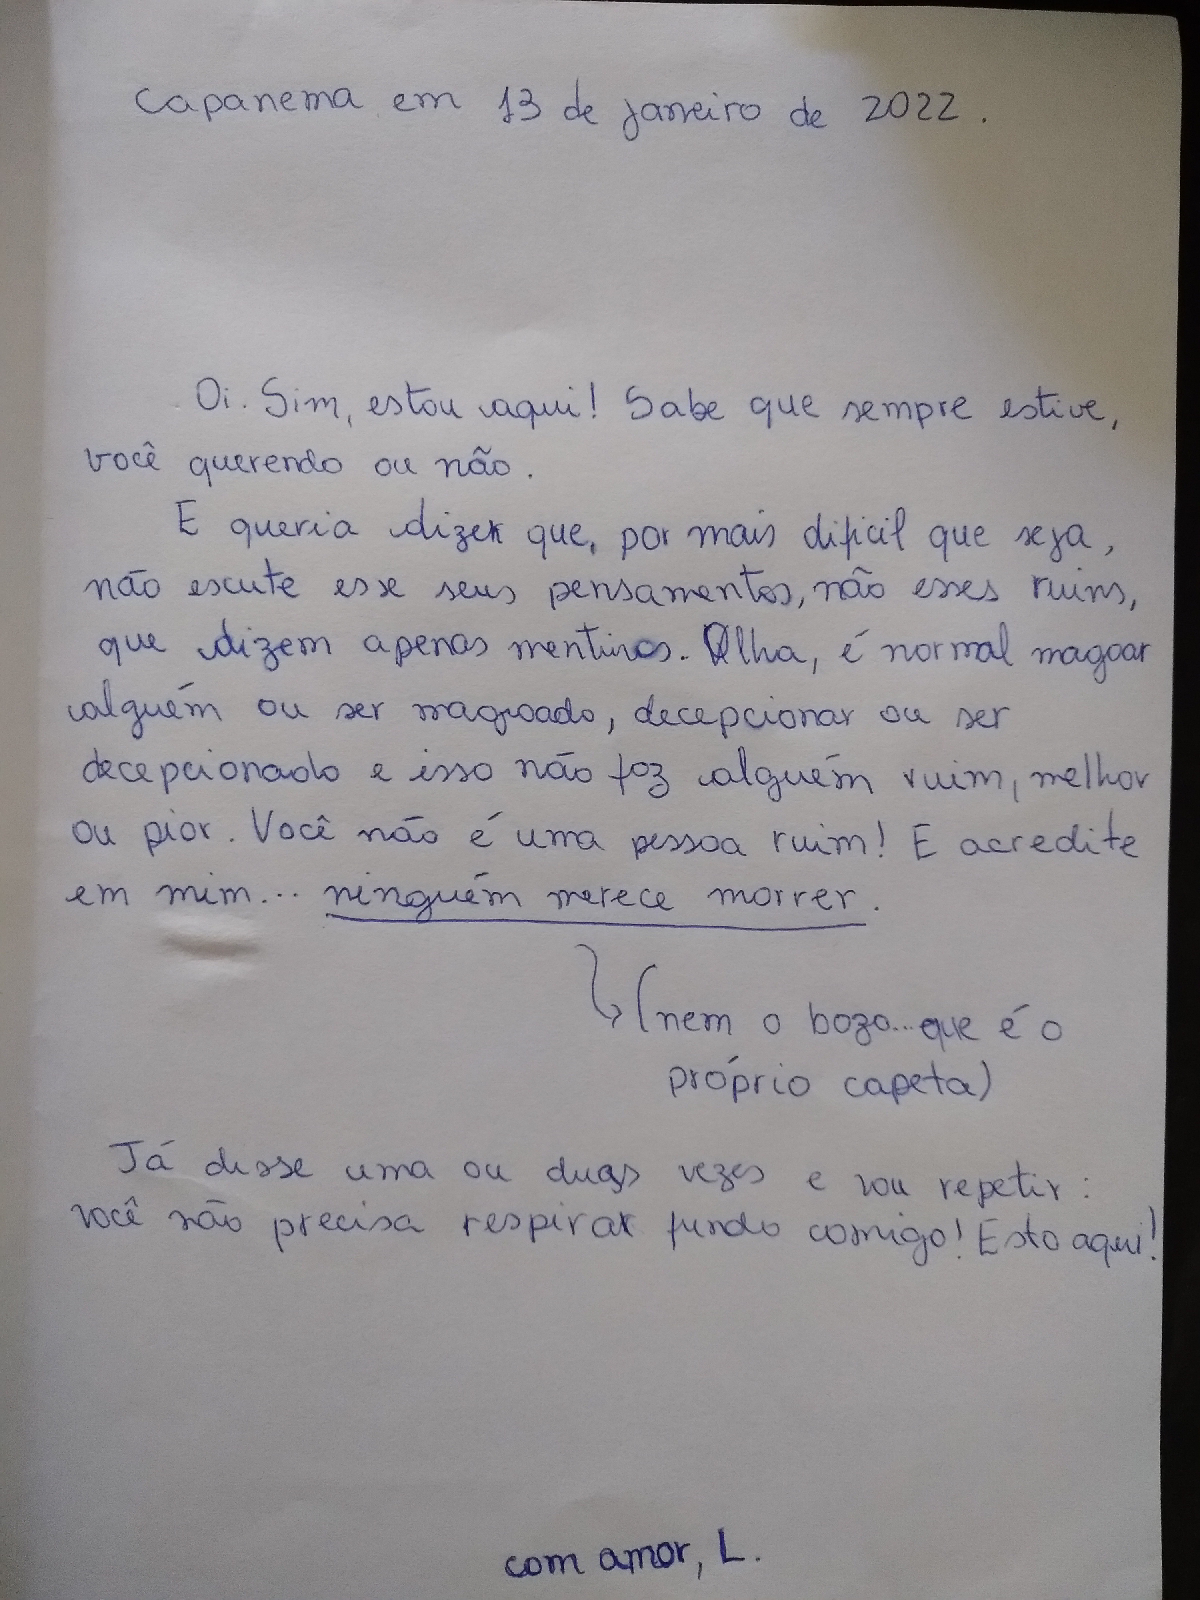 Capanema em 13 de janeiro de 2022.
Oi. Sim, estou aqui! Sabe que sempre estive,
você querendo ou não.
E queria dizer que, por mais dificil que seja,
não escute esse seus pensamentos, não esses ruins,
que dizem apenas mentiras. Olha, é normal magoar
alguém ou ser magoado, decepcionar ou ser
decepcionado e isso não faz alguém ruim, melhor
ou pior. Você não é uma pessoa ruim! E acredite
em mim... ninguém merece morrer.
(nem o bozo... que é o
próprio capeta)
Já disse uma ou duas vezes e vou repetir:
você não precisa respirar fundo comigo! Esto aqui!
com amor, L.